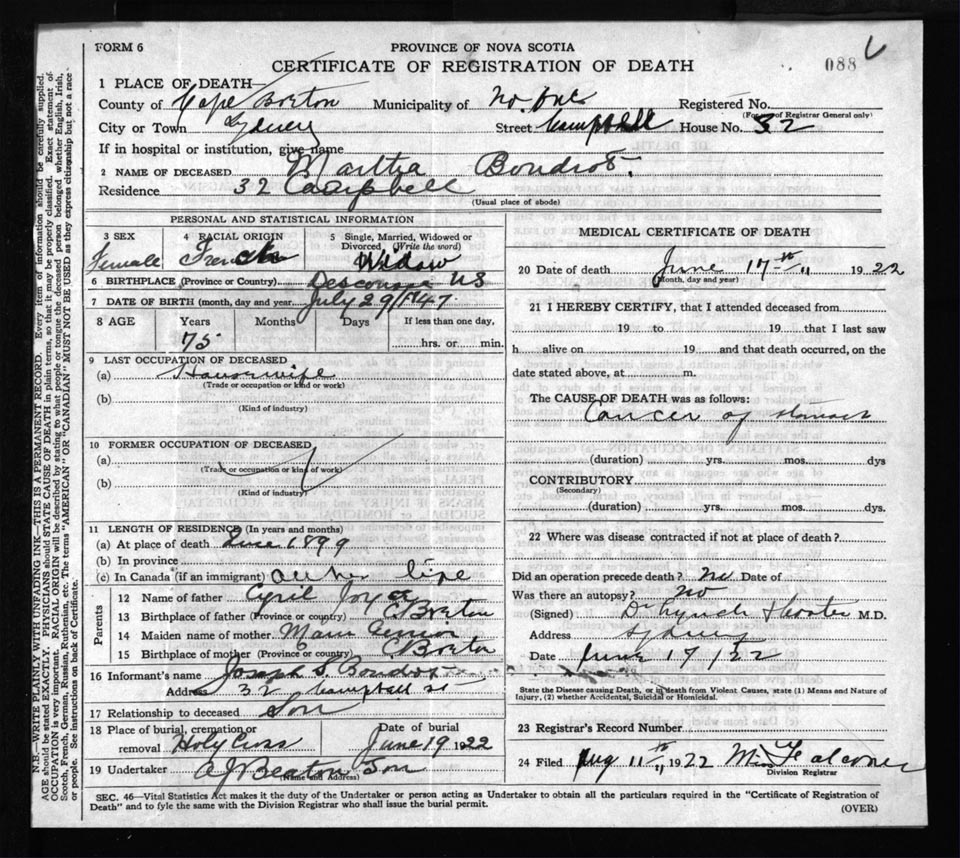 FORM 6
PROVINCE OF NOVA SCOTIA
CERTIFICATE OF REGISTRATION OF DEATH
088
1 PLACE OF DEATH
County of Cape Breton Municipality of No. One Registered No.
(For use of Registrar General only)
City or Town Sydney Street Campbell House No. 32
If in hospital or institution, give name
2 NAME OF DECEASED Martha Boudrot.
Residence 32 Campbell
(Usual place of abode)
PERSONAL AND STATISTICAL INFORMATION
3 SEX 4 RACIAL ORIGIN 5 Single, Married, Widowed or Divorced (Write the word)
Female French Widow
6 BIRTHPLACE (Province or Country) U S
7 DATE OF BIRTH (month, day and year) July 29/1847.
8 AGE Years Months Days If less than one day,
75 hrs. or min.
9 LAST OCCUPATION OF DECEASED
(a) Housewife
(Trade or occupation or kind or work)
(b)
(Kind of industry)
10 FORMER OCCUPATION OF DECEASED
(a)
(Trade or occupation or kind of work)
(b)
(Kind of industry)
11 LENGTH OF RESIDENCE (In years and months)
(a) At place of death Since 1899
(b) In province
(c) In Canada (if an immigrant) all her life
Parents
12 Name of father Cyril Joyce
13 Birthplace of father (Province or country) C Breton
14 Maiden name of mother
15 Birthplace of mother (Province or country) C Breton
16 Informant's name Joseph S. Boudrot
Address 32 Campbell St
17 Relationship to deceased Son
18 Place of burial, cremation or removal Holy Cross Date of burial June 19 1922
19 Undertaker A J Beaton & Son
(Name and address)
MEDICAL CERTIFICATE OF DEATH
20 Date of death June 17th 1922
(Month, day and year)
21 I HEREBY CERTIFY, that I attended deceased from
19 to 19 that I last saw
h alive on 19 and that death occurred, on the
date stated above, at m.
The CAUSE OF DEATH was as follows:
Cancer of stomach
(duration) yrs. mos. dys
CONTRIBUTORY
(Secondary)
(duration) yrs. mos. dys.
22 Where was disease contracted if not at place of death?
Did an operation precede death? no Date of
Was there an autopsy? no
(Signed) Dr Lynch M.D.
Address Sydney
Date June 17/22
State the Disease causing Death, or in death from Violent Causes, state (1) Means and Nature of
Injury, (2) whether Accidental, Suicidal or Homicidal.
23 Registrar's Record Number
24 Filed Aug 11th 1922
Division Registrar
SEC. 46—Vital Statistics Act makes it the duty of the Undertaker or person acting as Undertaker to obtain all the particulars required in the "Certificate of Registration of
Death" and to file the same with the Division Registrar who shall issue the burial permit.
(OVER)
N.B.—WRITE PLAINLY WITH UNFADING INK—THIS IS A PERMANENT RECORD. Every item of information should be carefully supplied.
AGE should be stated EXACTLY. PHYSICIANS should STATE CAUSE OF DEATH in plain terms, so that it may be properly classified. Exact statement of
OCCUPATION is very important. RACIAL ORIGIN will be described by stating to what people or tongue the deceased person belonged whether English, Irish,
Scotch, French, German, Russian, Ruthenian, etc. The terms "AMERICAN" OR "CANADIAN" MUST NOT BE USED as they express citizenship but not a race
or people. See instructions on back of Certificate.